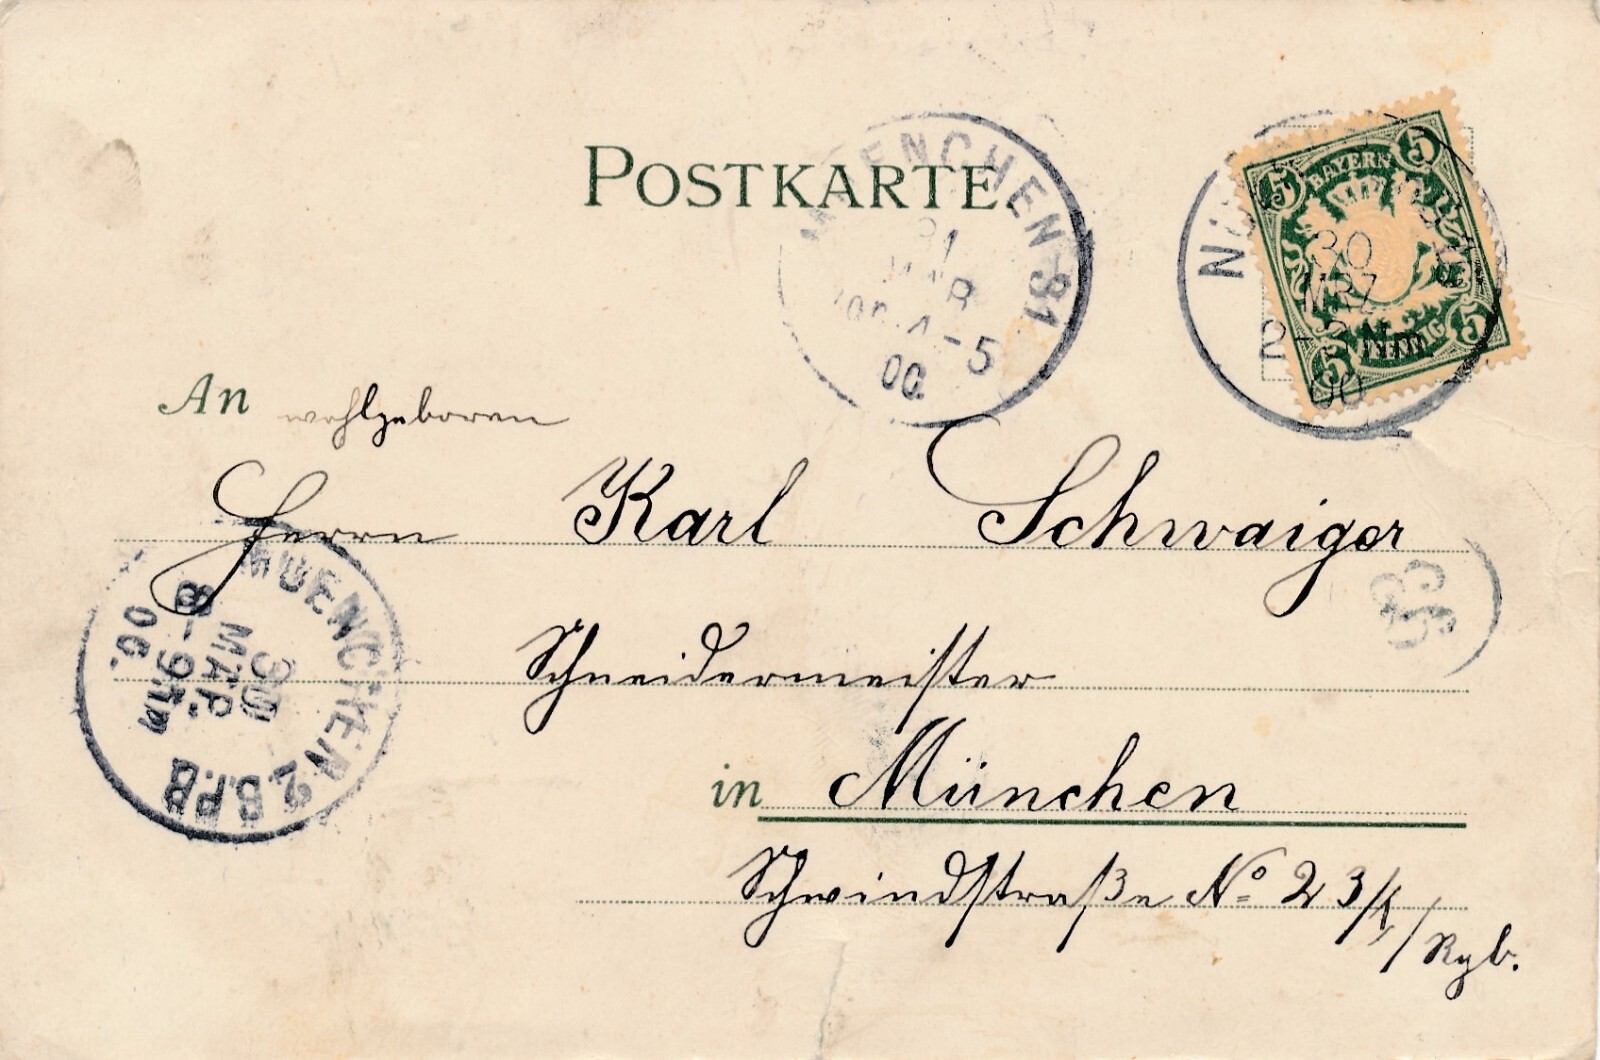 POSTKARTE.
MUENCHEN 31
31
MAR
4-5
00.
5 BAYERN 5
5 5
30
MRZ
2-3 Nm
00
An wohlgeboren
Herrn Karl Schwaiger
Schneidermeister
in München
Schwindstraße No 23/I/Rgb.
MUENCHEN 2. B.P.B
30
MAR
8-9 Nm
00.